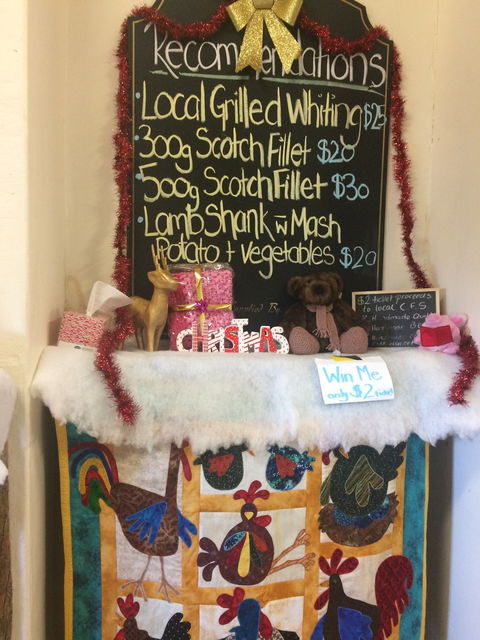 Recommendations
Local Grilled Whiting $25
300g Scotch Fillet $20
500g Scotch Fillet $30
Lamb Shank w Mash
Potato + Vegetables $20
By
CHRISTMAS
$2 ticket proceeds
to local C.F.S.
Win Me
only $2 ticket